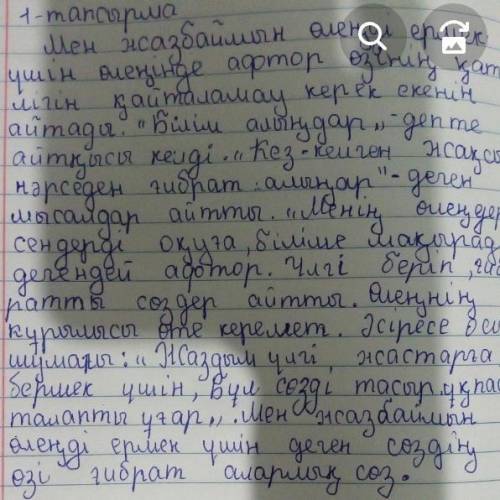 1-тапсырма
Мен жазбаймын өлеңді ермек
үшін өлеңінде афтор өзінің қат
лігін қайталамау керек екенін
айтады. "Білім алыңдар„-депте
айтқысы келді. "Кез-келген жақсы
нәрседен ғибрат алыңар"-деген
мысалдар айтты. "Менің өлеңдер
сендерді оқуға, білімге шақырад
дегендей афтор. Үлгі беріп, ғи
ратты сөздер айтты. Өлеңнің
құрылысы өте керемет. Әсіресе оси
шумағы: "Жаздым үлгі жастарға
бермек үшін, Бұл сөзді тасыр ұқпас
талапты ұғар„. Мен жазбаймын
өлеңді ермек үшін деген сөздің
өзі ғибрат аларлық сөз.